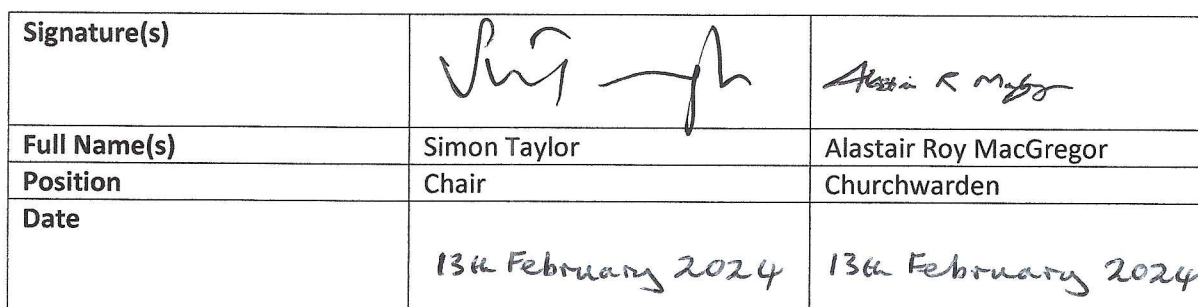 Signature(s)
Full Name(s) Simon Taylor Alastair Roy MacGregor
Position Chair Churchwarden
Date
13th February 2024 13th February 2024